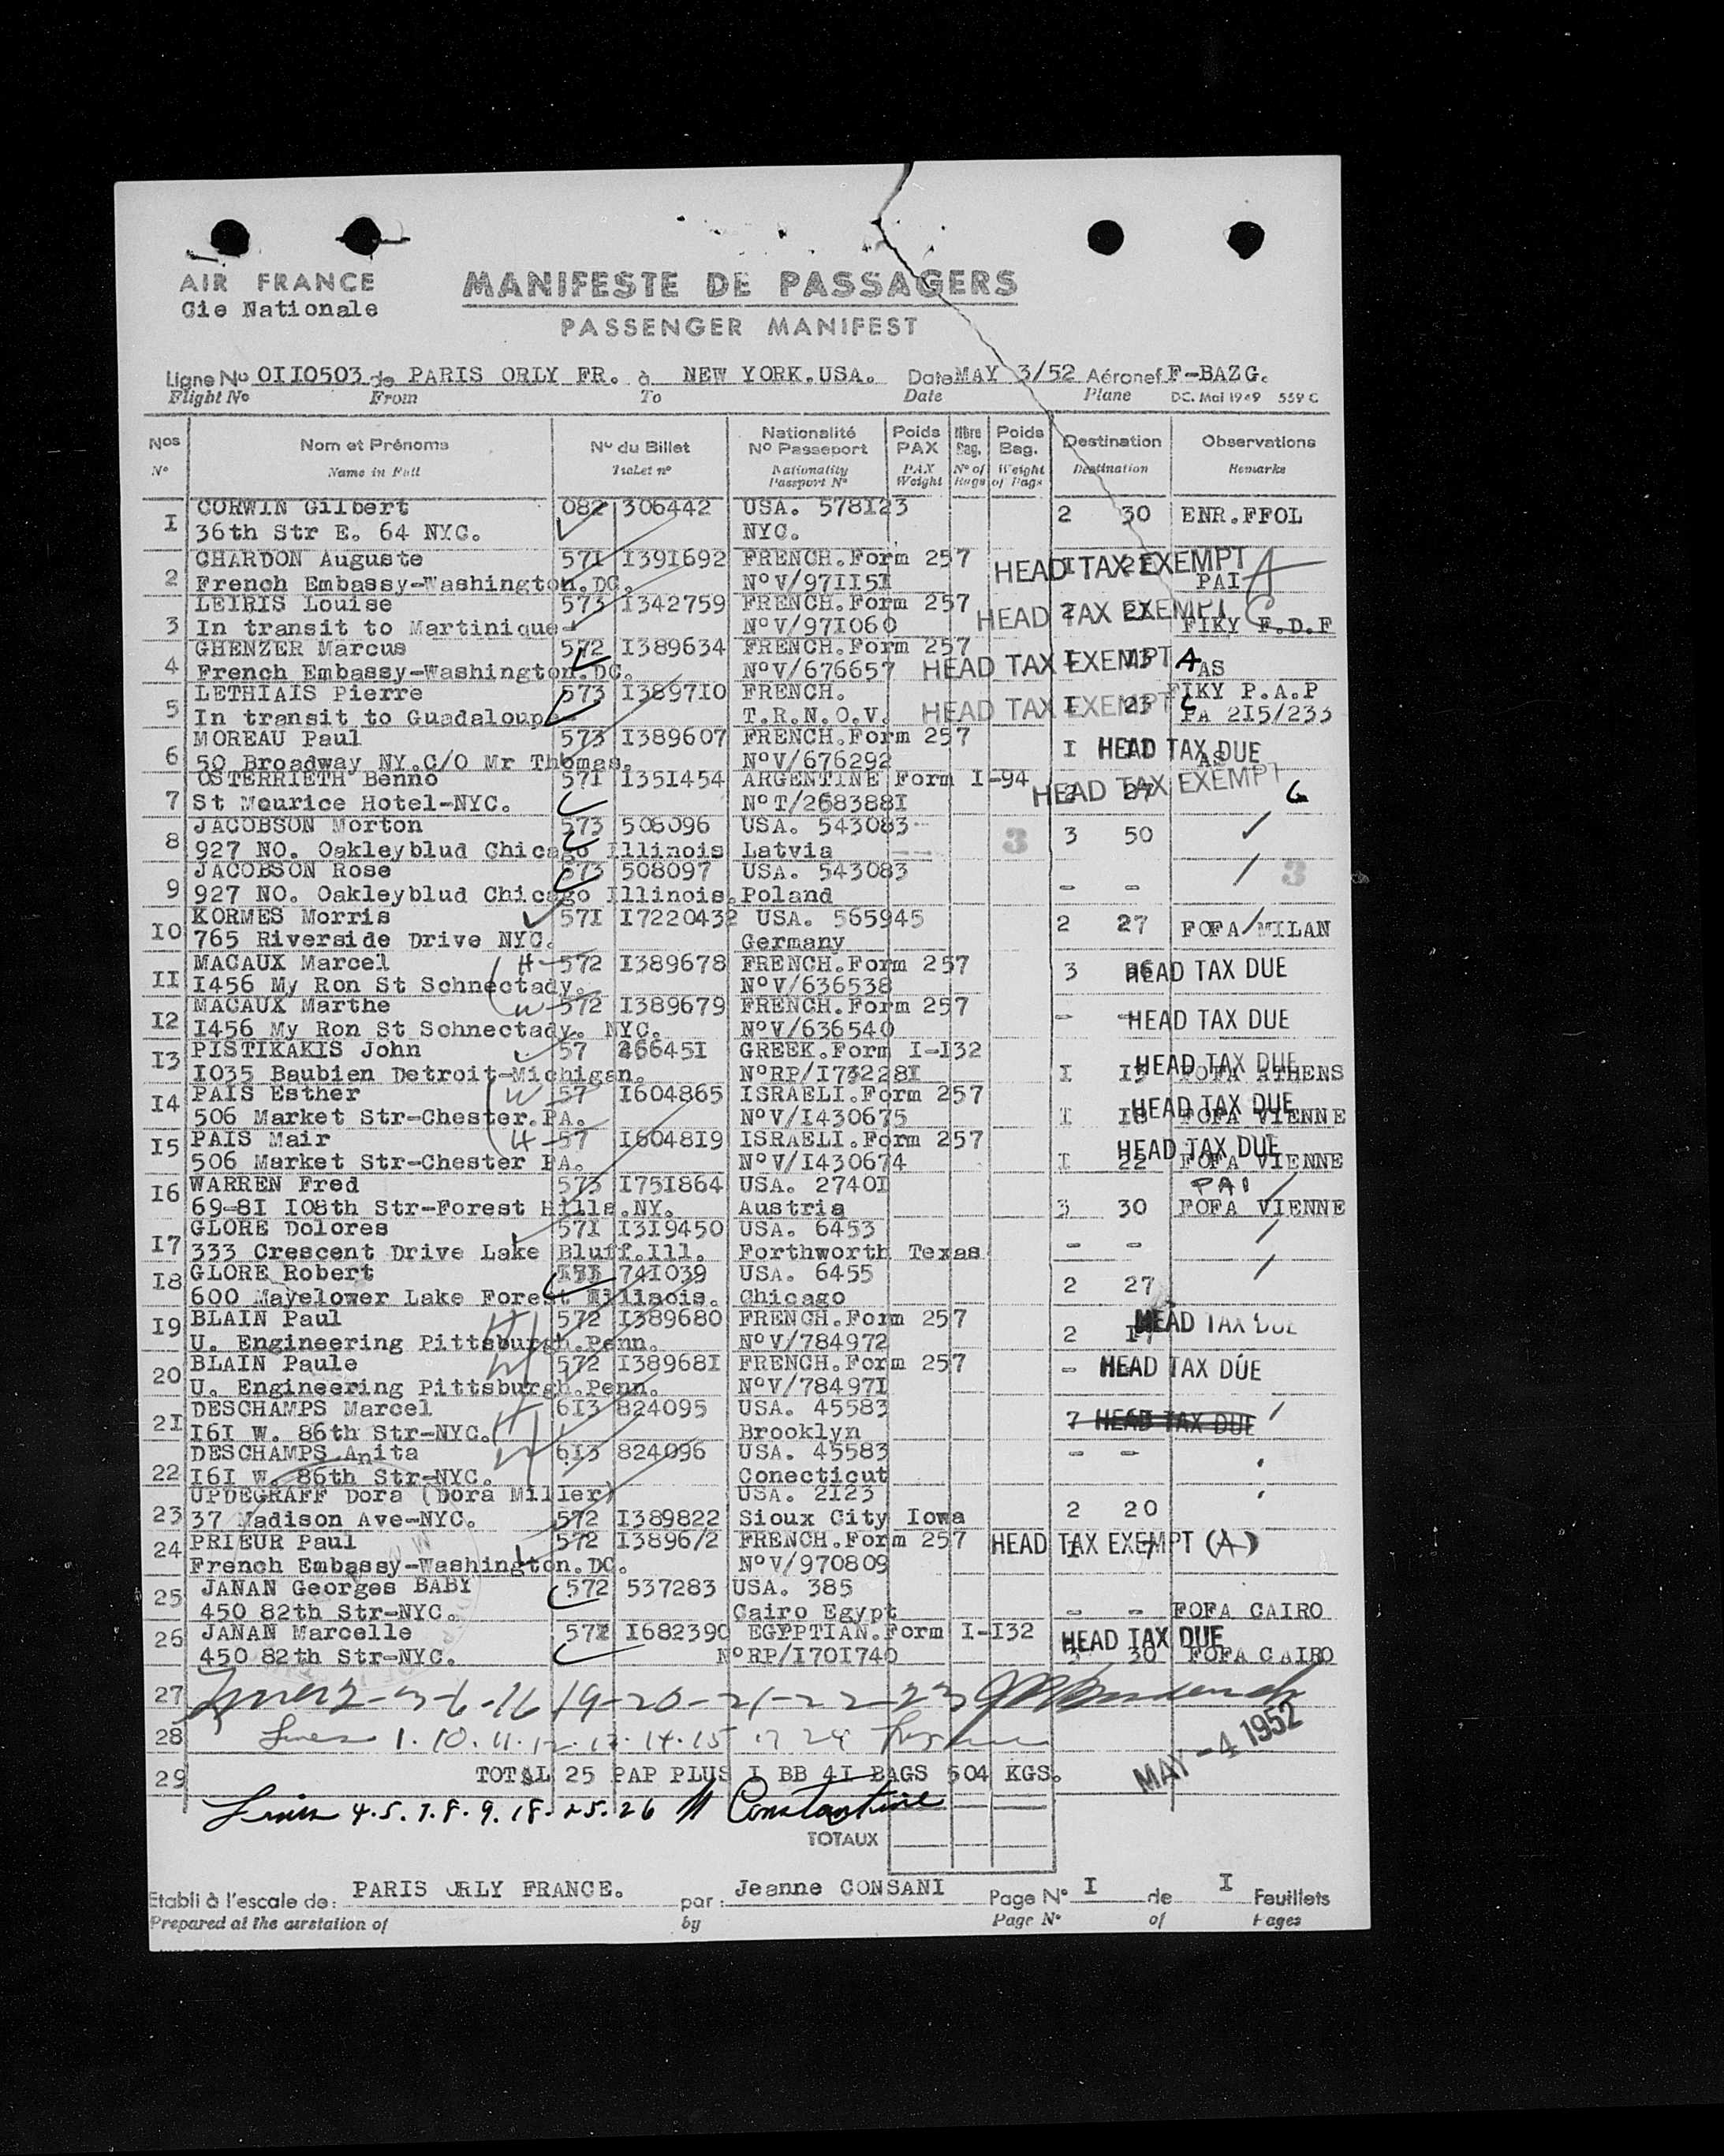 AIR FRANCE
Cie Nationale
MANIFESTE DE PASSAGERS
PASSENGER MANIFEST
Ligne No OII0503 de PARIS ORLY FR. à NEW YORK.USA. Date MAY 3/52 Aéronef F-BAZG.
Flight No From To Date Plane DC. Mai 1949 559 C
Nos Nom et Prénoms No du Billet Nationalité No Passeport Poids PAX Nbre Bag. Poids Bag. Destination Observations
No Name in Full Ticket no Nationality Passport No PAX Weight No of Bags Weight of Bags Destination Remarks
I CORWIN Gilbert 082 306442 USA. 578I23
36th Str E. 64 NYC. NYC. 2 30 ENR.FFOL
2 CHARDON Auguste 57I I39I692 FRENCH.Form 257 HEAD TAX EXEMPT A
French Embassy-Washington.DC. NoV/97II5I PAI
3 LEIRIS Louise 573 I342759 FRENCH.Form 257 HEAD TAX EXEMPT
In transit to Martinique NoV/97I060 FIKY F.D.F
4 GHENZER Marcus 572 I389634 FRENCH.Form 257 HEAD TAX EXEMPT A
French Embassy-Washington.DC. NoV/676657 AS
5 LETHIAIS Pierre 573 I389710 FRENCH. FIKY P.A.P
In transit to Guadaloupe T.R.N.O.V. HEAD TAX EXEMPT I 23 PA 2I5/233
6 MOREAU Paul 573 I389607 FRENCH.Form 257
50 Broadway NY.C/O Mr Thomas. NoV/676292 I HEAD TAX DUE AS
7 OSTERRIETH Benno 57I I351454 ARGENTINE Form I-94 HEAD TAX EXEMPT
St Meurice Hotel-NYC. NoT/268388I
8 JACOBSON Morton 573 508096 USA. 543083 3 3 50
927 NO. Oakleyblud Chicago Illinois Latvia
9 JACOBSON Rose 573 508097 USA. 543083 3
927 NO. Oakleyblud Chicago Illinois.Poland - -
IO KORMES Morris 57I I7220432 USA. 565945
765 Riverside Drive NYC. Germany 2 27 FOFA/MILAN
II MACAUX Marcel H 572 I389678 FRENCH.Form 257
I456 My Ron St Schnectady. NoV/636538 3 HEAD TAX DUE
I2 MACAUX Marthe W 572 I389679 FRENCH.Form 257
I456 My Ron St Schnectady. NYC. NoV/636540 - HEAD TAX DUE
I3 PISTIKAKIS John 57 26645I GREEK.Form I-I32 HEAD TAX DUE
I035 Baubien Detroit-Michigan. NoRP/I73228I I FOFA ATHENS
I4 PAIS Esther W 57 I604865 ISRAELI.Form 257 HEAD TAX DUE
506 Market Str-Chester.PA. NoV/I430675 I I8 FOFA VIENNE
I5 PAIS Mair H 57 I6048I9 ISRAELI.Form 257 HEAD TAX DUE
506 Market Str-Chester PA. NoV/I430674 I 22 FOFA VIENNE
I6 WARREN Fred 573 I75I864 USA. 2740I PAI
69-8I I08th Str-Forest Hills.NY. Austria 3 30 FOFA VIENNE
I7 GLORE Dolores 57I I3I9450 USA. 6453
333 Crescent Drive Lake Bluff.Ill. Forthworth Texas - -
I8 GLORE Robert 74I039 USA. 6455
600 Mayelower Lake Forest Chicago 2 27
I9 BLAIN Paul H 572 I389680 FRENCH.Form 257 HEAD TAX DUE
U. Engineering Pittsburgh.Penn. NoV/784972 2
20 BLAIN Paule W 572 I38968I FRENCH.Form 257 - HEAD TAX DUE
U. Engineering Pittsburgh.Penn. NoV/78497I
2I DESCHAMPS Marcel H 6I3 824095 USA. 45583 7 HEAD TAX DUE
I6I W. 86th Str-NYC. Brooklyn
22 DESCHAMPS Anita W 6I3 824096 USA. 45583 - -
I6I W. 86th Str-NYC. Conecticut
23 UPDEGRAFF Dora (Dora Miller) USA. 2I23
37 Madison Ave-NYC. 572 I389822 Sioux City Iowa 2 20
24 PRIEUR Paul 572 I3896/2 FRENCH.Form 257 HEAD TAX EXEMPT (A)
French Embassy-Washington.DC. NoV/970809
25 JANAN Georges BABY 572 537283 USA. 385
450 82th Str-NYC. Cairo Egypt - - FOFA CAIRO
26 JANAN Marcelle 572 I682390 EGYPTIAN.Form I-I32 HEAD TAX DUE
450 82th Str-NYC. NoRP/I70I740 30 FOFA CAIRO
27 19-20-21-22-23
28 Lines 1.10.11.12.13.14.15
MAY -4 1952
29 TOTAL 25 PAP PLUS I BB 4I BAGS 504 KGS.
Lines 4.5.7.8.9.18.25.26 Constantine
TOTAUX
Etabli à l'escale de: PARIS ORLY FRANCE. par: Jeanne CONSANI Page No I de I Feuillets
Prepared at the airstation of by Page No of Pages